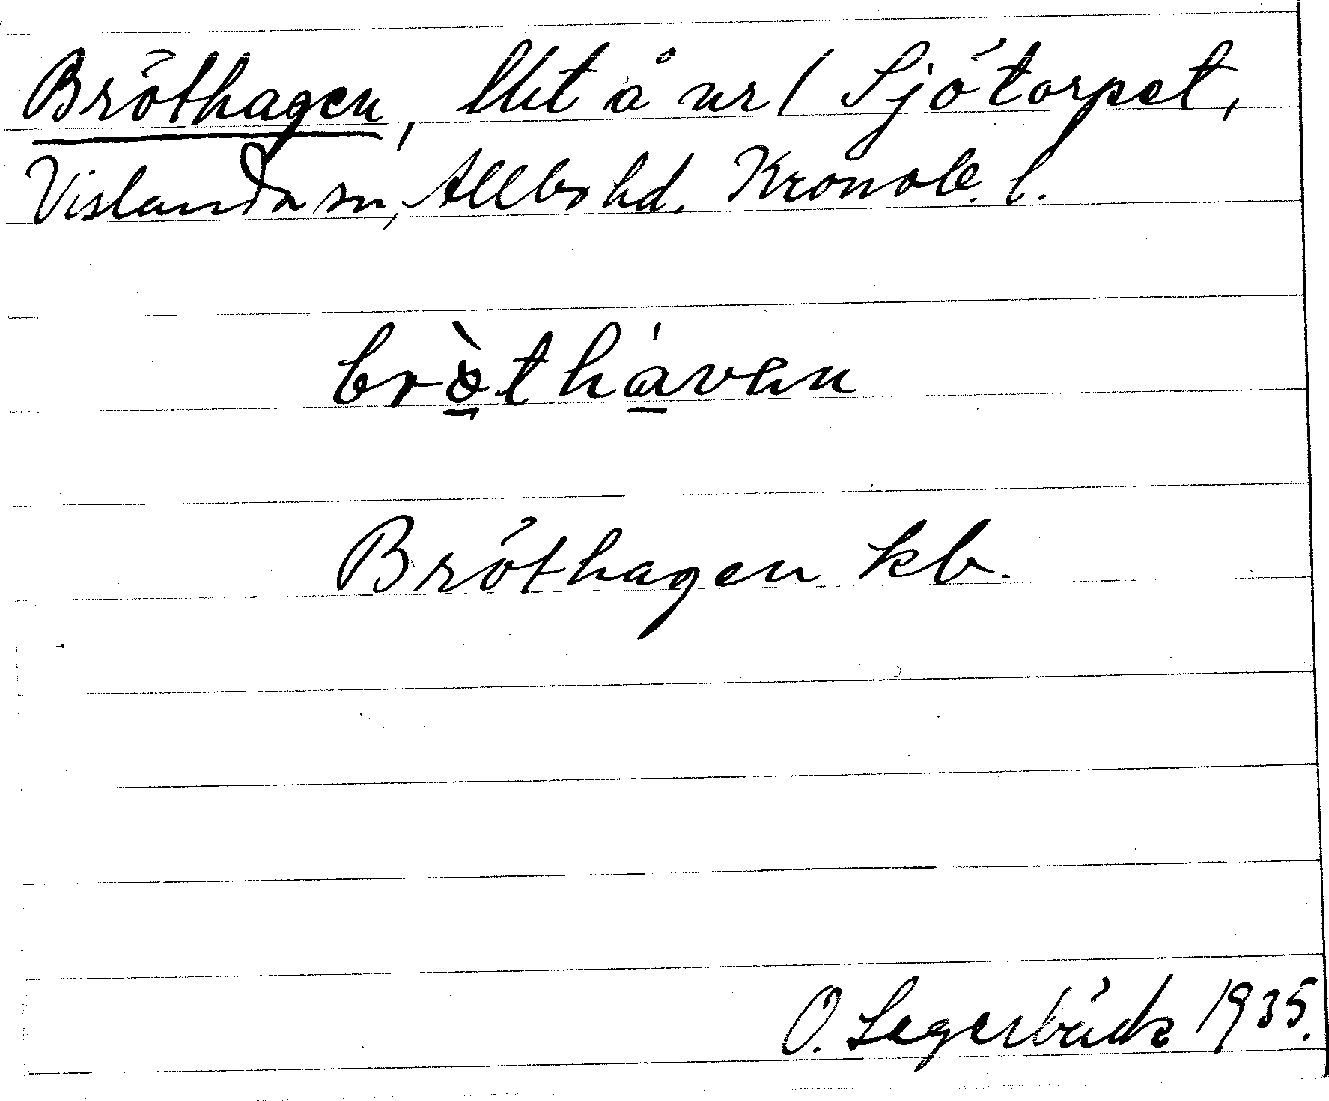 Bröthagen, lht å nr 1 Sjötorpet,
Vislanda sn, Allbo hd. Kronob. l.
bròthávan
Bröthagen kb.
O. Segerbäck 1935.